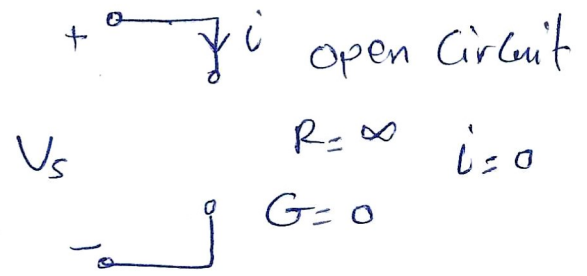 + i open Circuit
Vs R = ∞ i = 0
G = 0
-